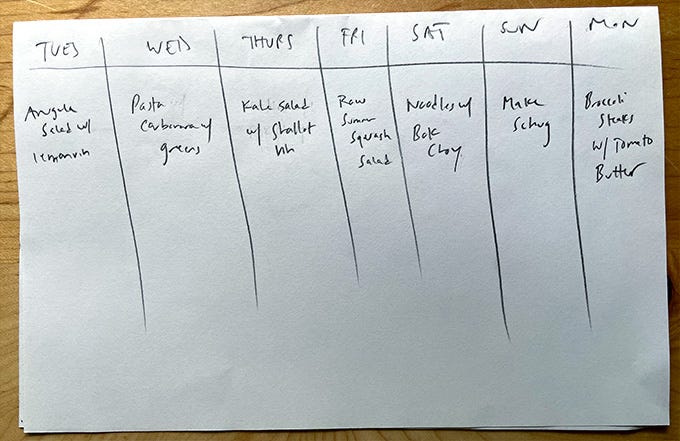 TUES WED THURS FRI SAT SUN MON
Arugula
Salad w/
lemon vin
Pasta
Carbonara w/
greens
Kale salad
w/ Shallot
vin
Raw
Summer
Squash
Salad
Noodles w/
Bok
Choy
Make
Schug
Broccoli
Steaks
w/ Tomato
Butter